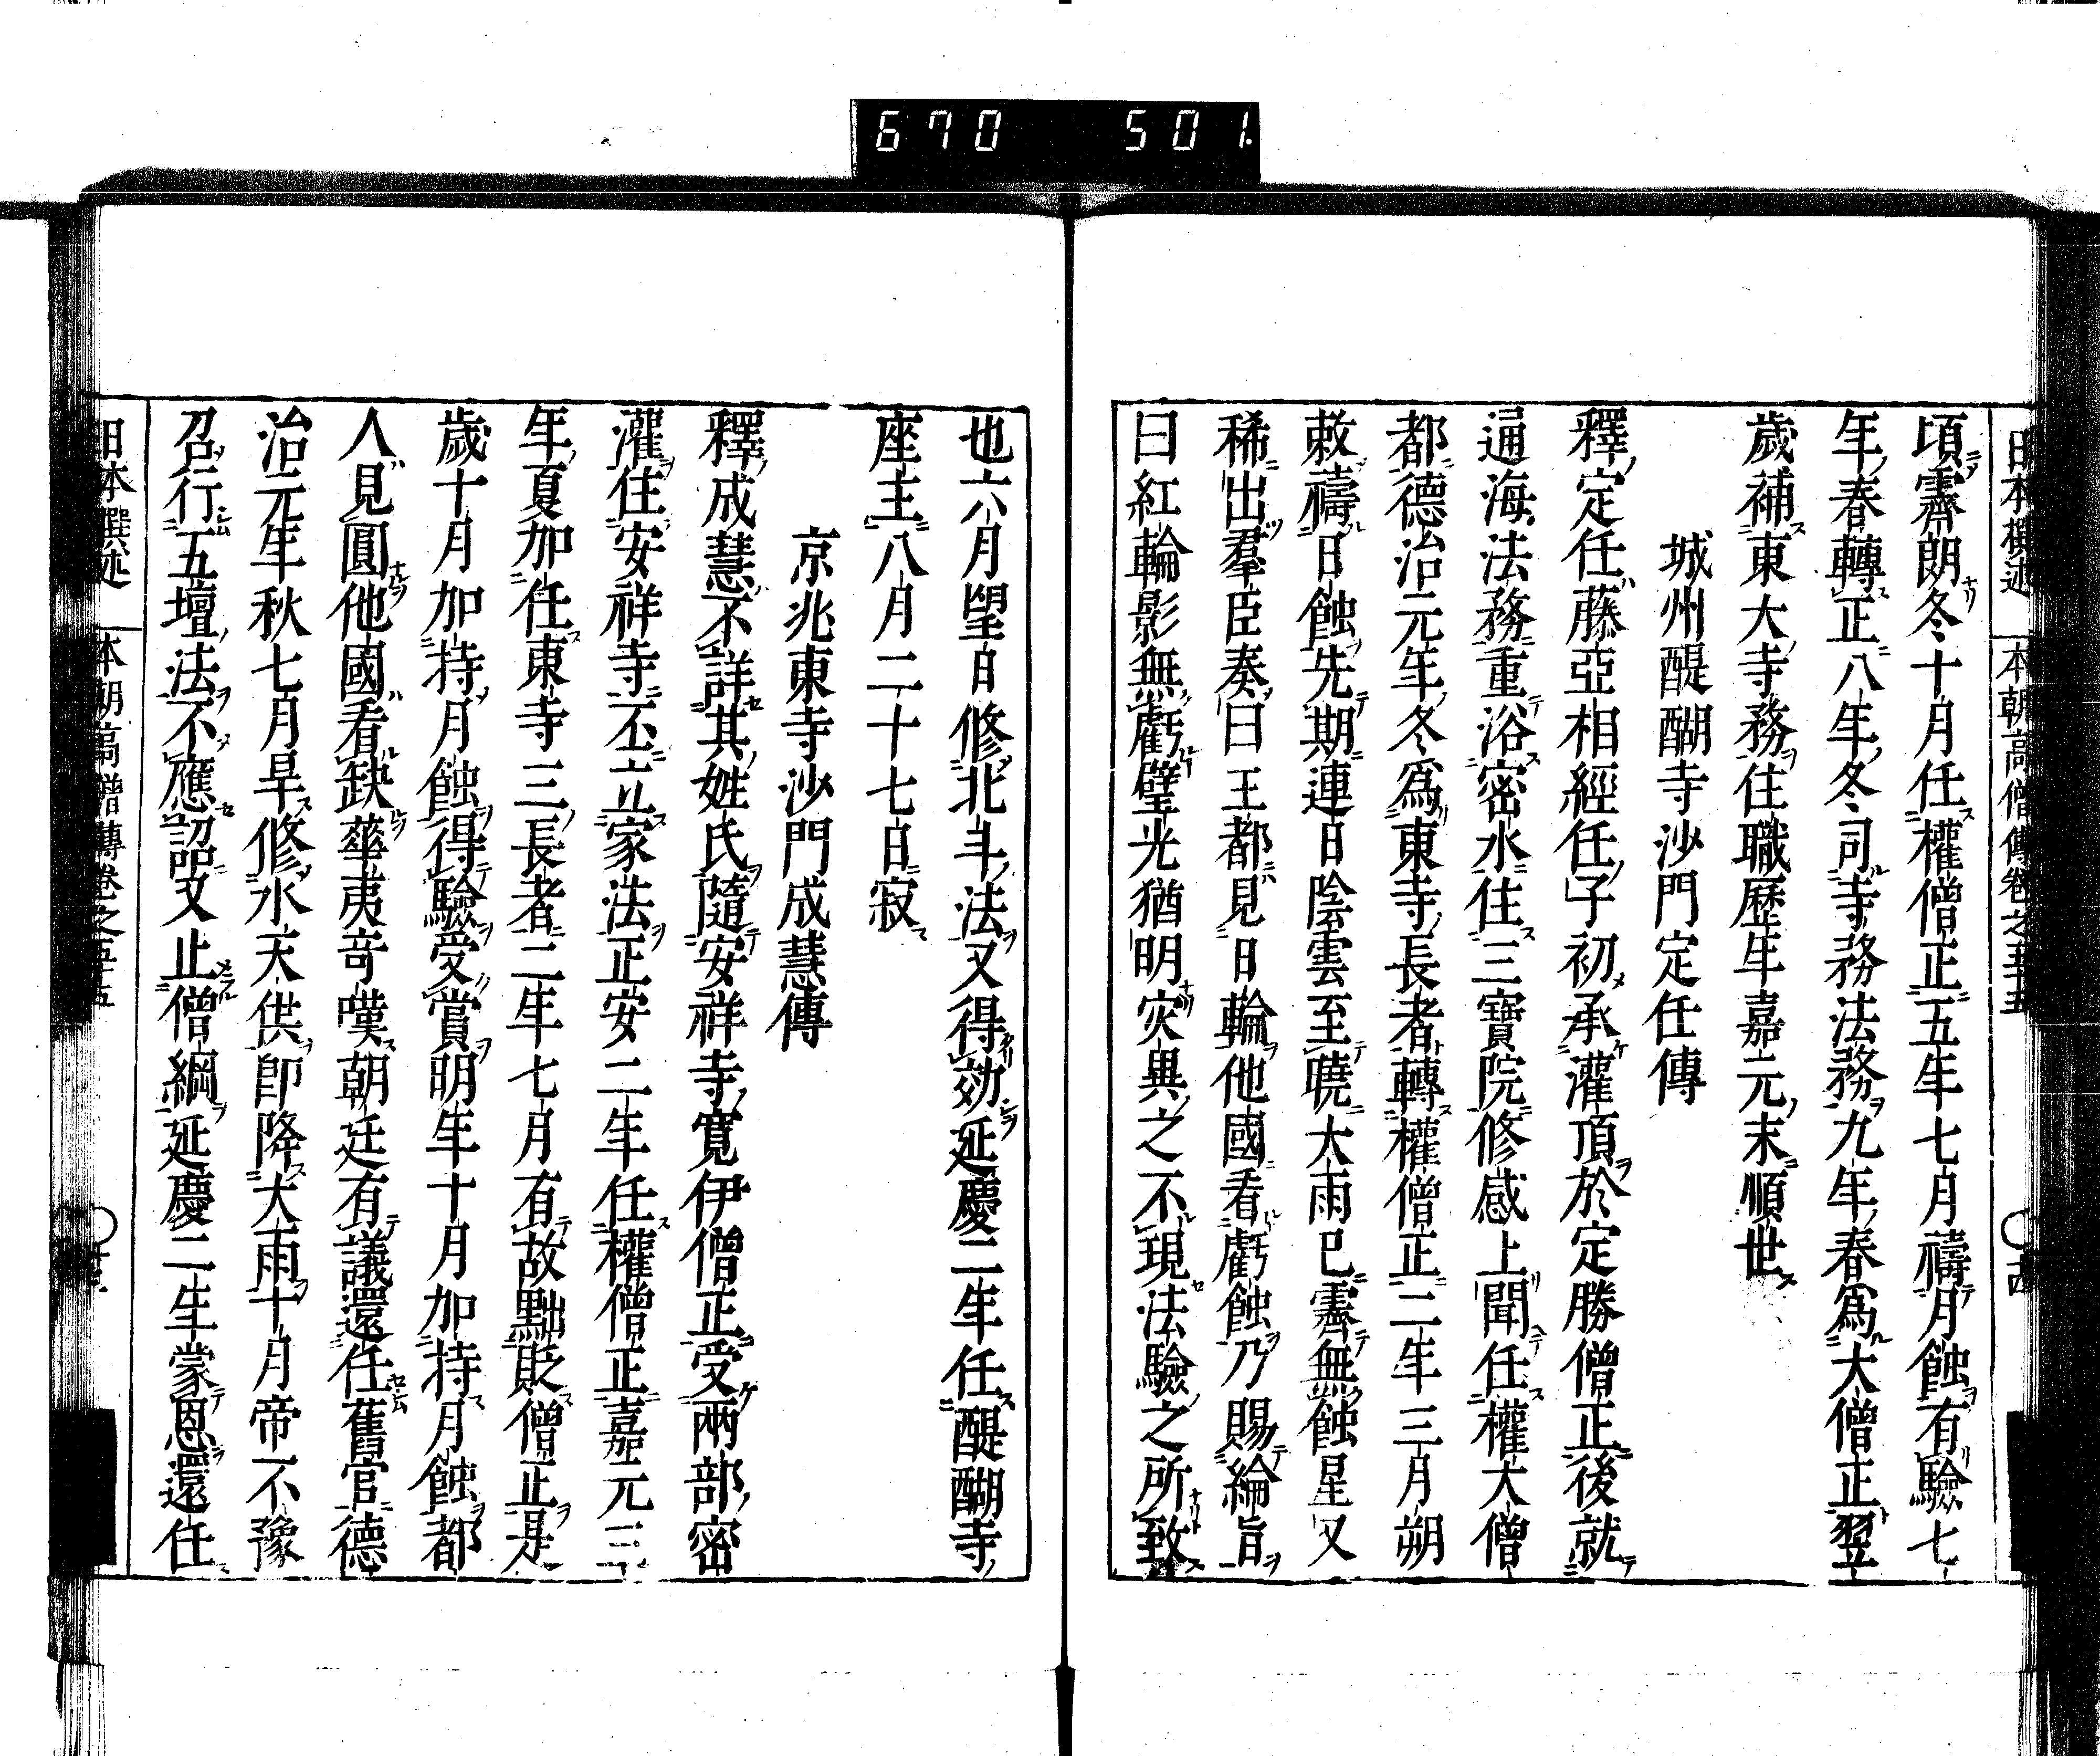 670 501.
日本撰述 本朝高僧傳卷之五十五
頃霽朗冬十月任權僧正五年七月禱月蝕有驗七
年春轉正八年冬司寺務法務九年春爲大僧正翌
歲補東大寺務住職歷年嘉元末順世
城州醍醐寺沙門定任傳
釋定任藤亞相經任子初承灌頂於定勝僧正後就
通海法務重浴密水住三寶院修感上聞任權大僧
都德治元年冬爲東寺長者轉權僧正二年三月朔
敕禱日蝕先期連日陰雲至曉大雨已霽無蝕星又
稀出羣臣奏曰王都見日輪他國看虧蝕乃賜綸旨
曰紅輪影無虧璧光猶明灾異之不現法驗之所致
也六月望日修北斗法又得効延慶二年任醍醐寺
座主八月二十七日寂
京兆東寺沙門成慧傳
釋成慧不詳其姓氏隨安祥寺寬伊僧正受兩部密
灌住安祥寺丕立家法正安二年任權僧正嘉元三
年夏加任東寺三長者二年七月有故黜貶僧正是
歲十月加持月蝕得驗受賞明年十月加持月蝕都
人見圓他國看缺華夷奇嘆朝廷有議還任舊官德
治元年秋七月旱修水天供卽降大雨十月帝不豫
召行五壇法不應詔又止僧綱延慶二年蒙恩還任
日本撰述 本朝高僧傳卷之五十五